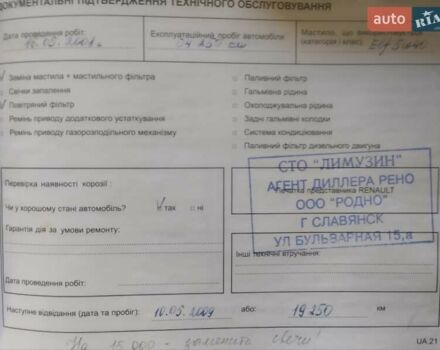 ДОКУМЕНТАЛЬНІ ПІДТВЕРДЖЕННЯ ТЕХНІЧНОГО ОБСЛУГОВУВАННЯ
auto RIA
Дата проведення робіт:
Експлуатаційний пробіг автомобіля
Мастило, що використ
(категорія і клас):
Заміна мастила + мастильного фільтра
Свічки запалення
Повітряний фільтр
Ремінь приводу додаткового устаткування
Ремінь приводу газорозподільного механізму
Паливний фільтр
Гальмівна рідина
Охолоджувальна рідина
Задні гальмівні колодки
Система кондиціювання
Паливний фільтр дизельного двигуна
Перевірка наявності корозії :
Чи у хорошому стані автомобіль? так ні
Гарантія дія за умови ремонту:
Дата проведення робіт:
Печатка представника RENAULT
СТО "ЛИМУЗИН"
АГЕНТ ДИЛЛЕРА РЕНО
ООО "РОДНО"
Г СЛАВЯНСК
УЛ БУЛЬВАРНАЯ 15,а
Інші технічні втручання:
Наступне відвідання (дата та пробіг): 10.05.2009 або: 19250 км
На 15 000 - заменить свечи!
UA.21